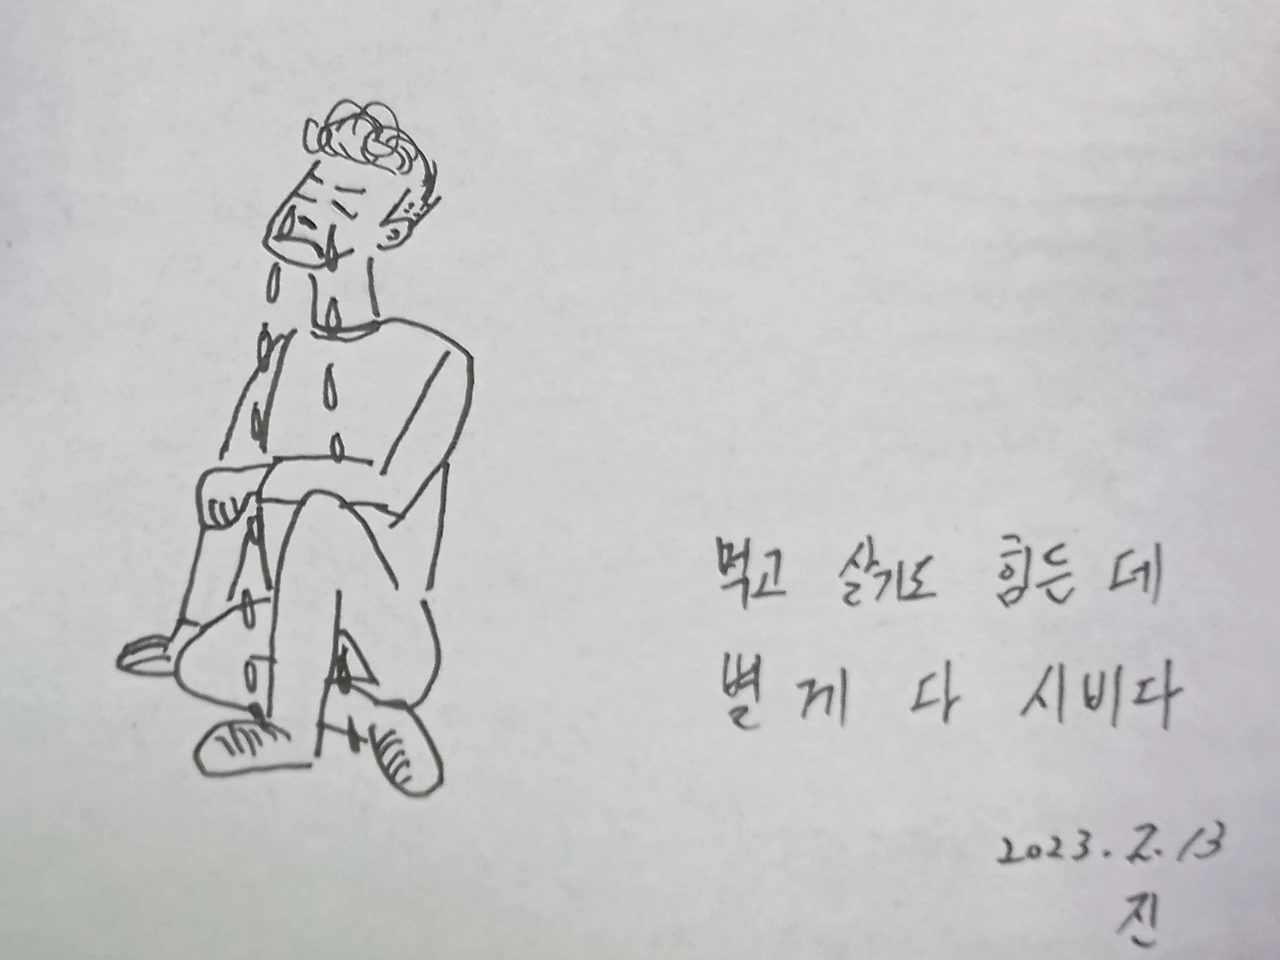 먹고 살기도 힘든 데
별 게 다 시비다
2023.2.13
진